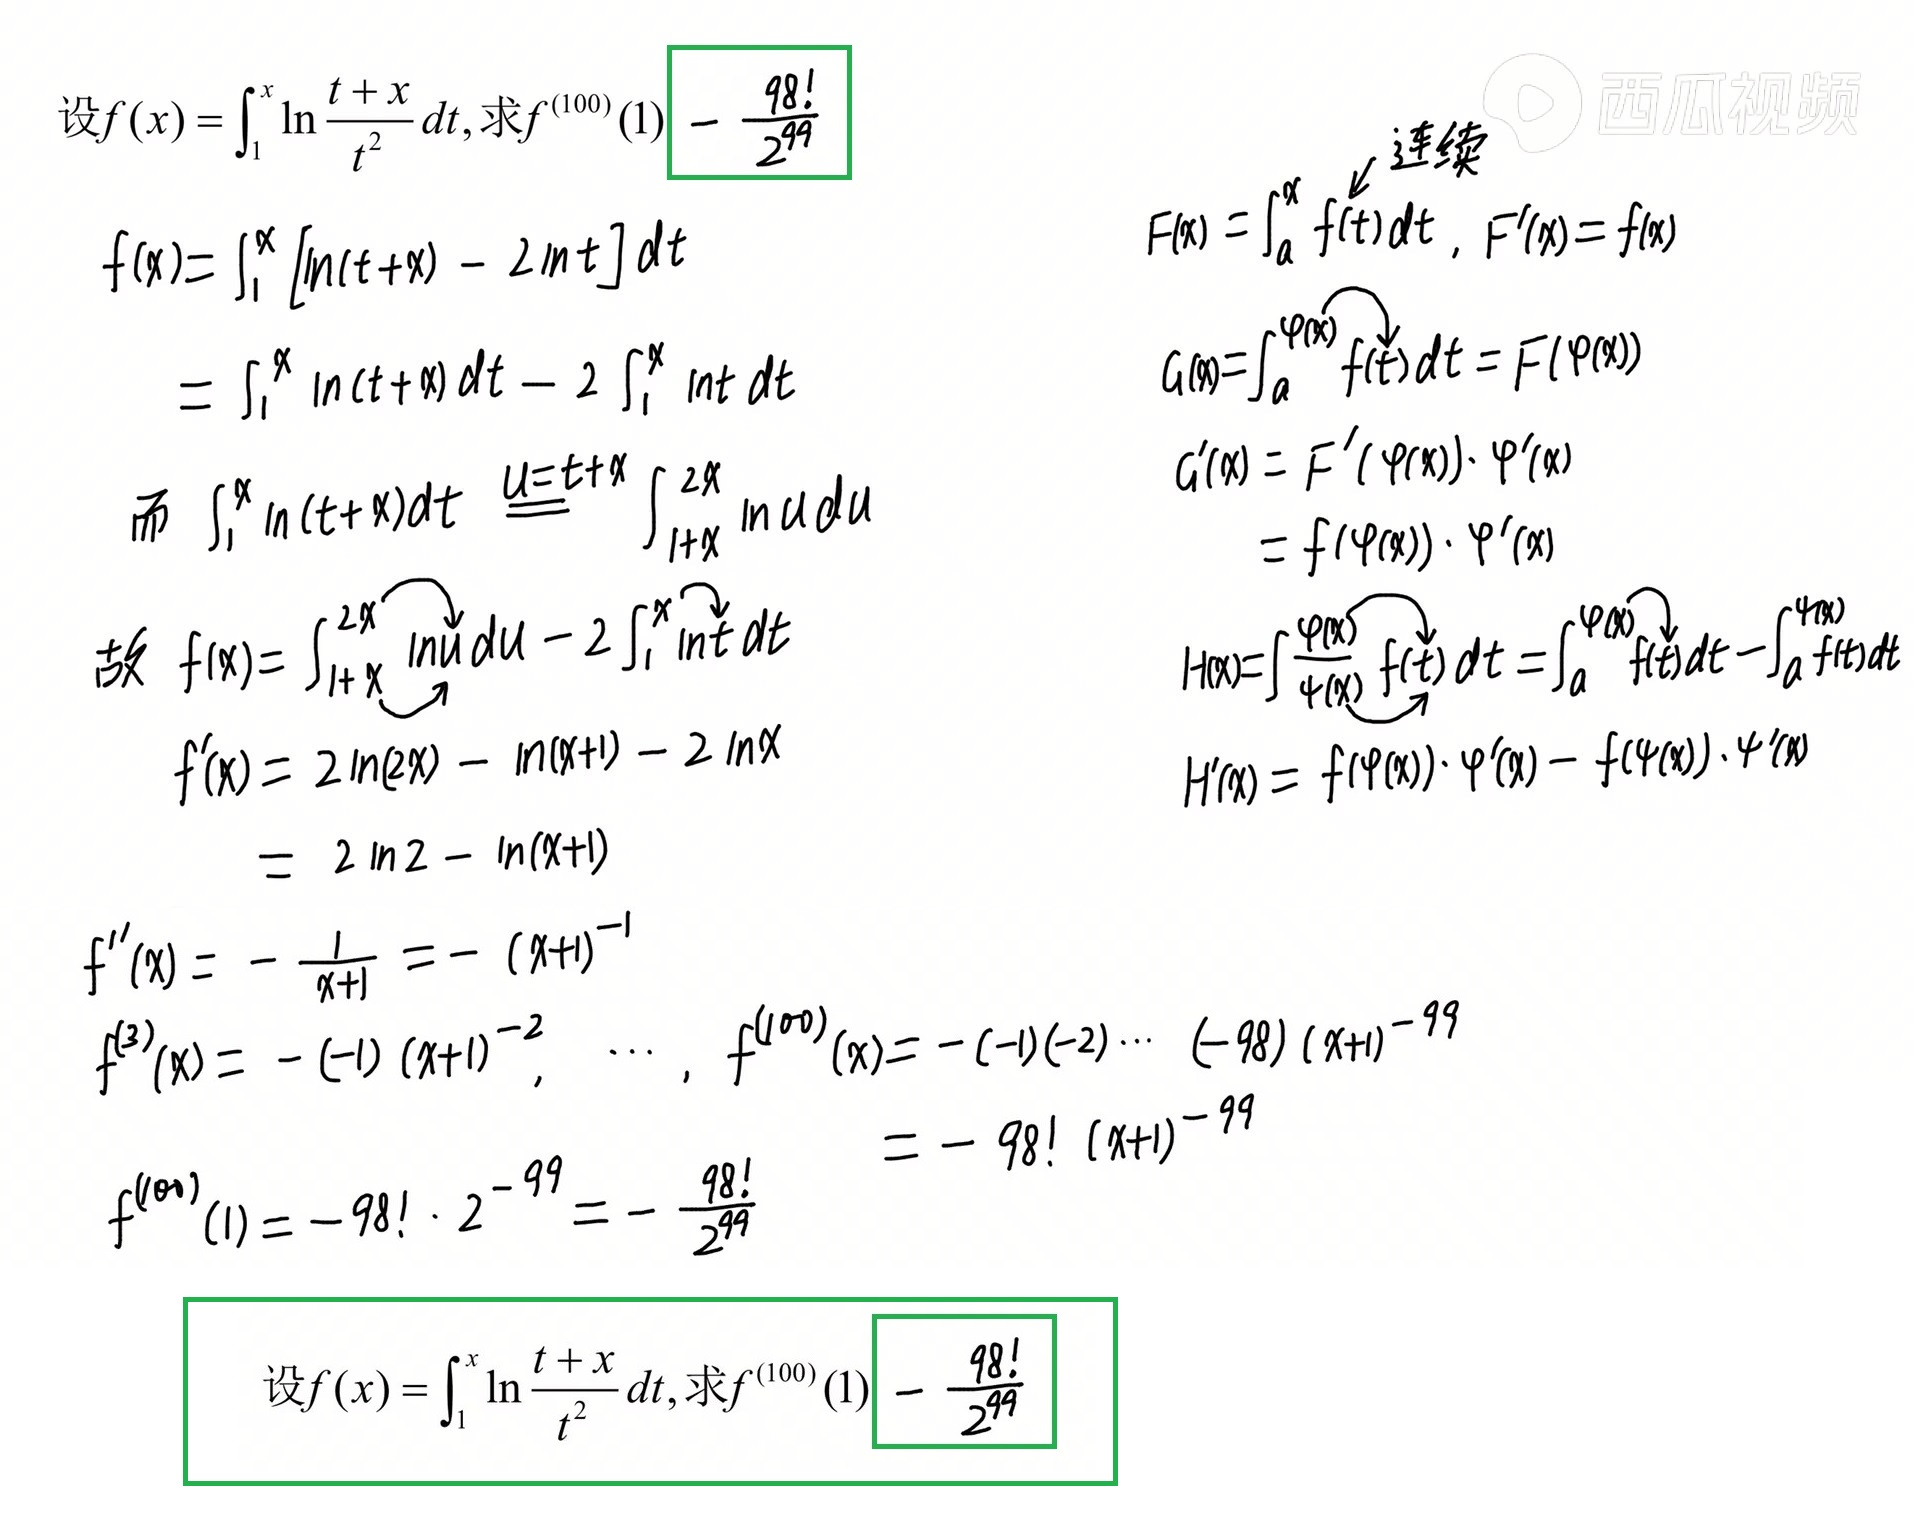 西瓜视频
设f(x)=∫₁ˣ ln (t+x)/t² dt,求f⁽¹⁰⁰⁾(1) − 98!/2⁹⁹
f(x)=∫₁ˣ [ln(t+x) − 2lnt]dt
=∫₁ˣ ln(t+x)dt − 2∫₁ˣ lnt dt
而 ∫₁ˣ ln(t+x)dt u=t+x ∫_{1+x}^{2x} lnudu
故 f(x)=∫_{1+x}^{2x} lnudu − 2∫₁ˣ lnt dt
f′(x)= 2ln(2x) − ln(x+1) − 2lnx
= 2ln2 − ln(x+1)
f″(x)= − 1/(x+1) = − (x+1)⁻¹
f⁽³⁾(x)= −(−1)(x+1)⁻², ⋯, f⁽¹⁰⁰⁾(x)= −(−1)(−2)⋯(−98)(x+1)⁻⁹⁹
= − 98! (x+1)⁻⁹⁹
f⁽¹⁰⁰⁾(1)= −98!·2⁻⁹⁹ = − 98!/2⁹⁹
连续
F(x)=∫ₐˣ f(t)dt, F′(x)=f(x)
G(x)=∫ₐ^{φ(x)} f(t)dt=F(φ(x))
G′(x)=F′(φ(x))·φ′(x)
=f(φ(x))·φ′(x)
H(x)=∫_{ψ(x)}^{φ(x)} f(t)dt=∫ₐ^{φ(x)} f(t)dt−∫ₐ^{ψ(x)} f(t)dt
H′(x)= f(φ(x))·φ′(x) − f(ψ(x))·ψ′(x)
设f(x)=∫₁ˣ ln (t+x)/t² dt,求f⁽¹⁰⁰⁾(1) − 98!/2⁹⁹